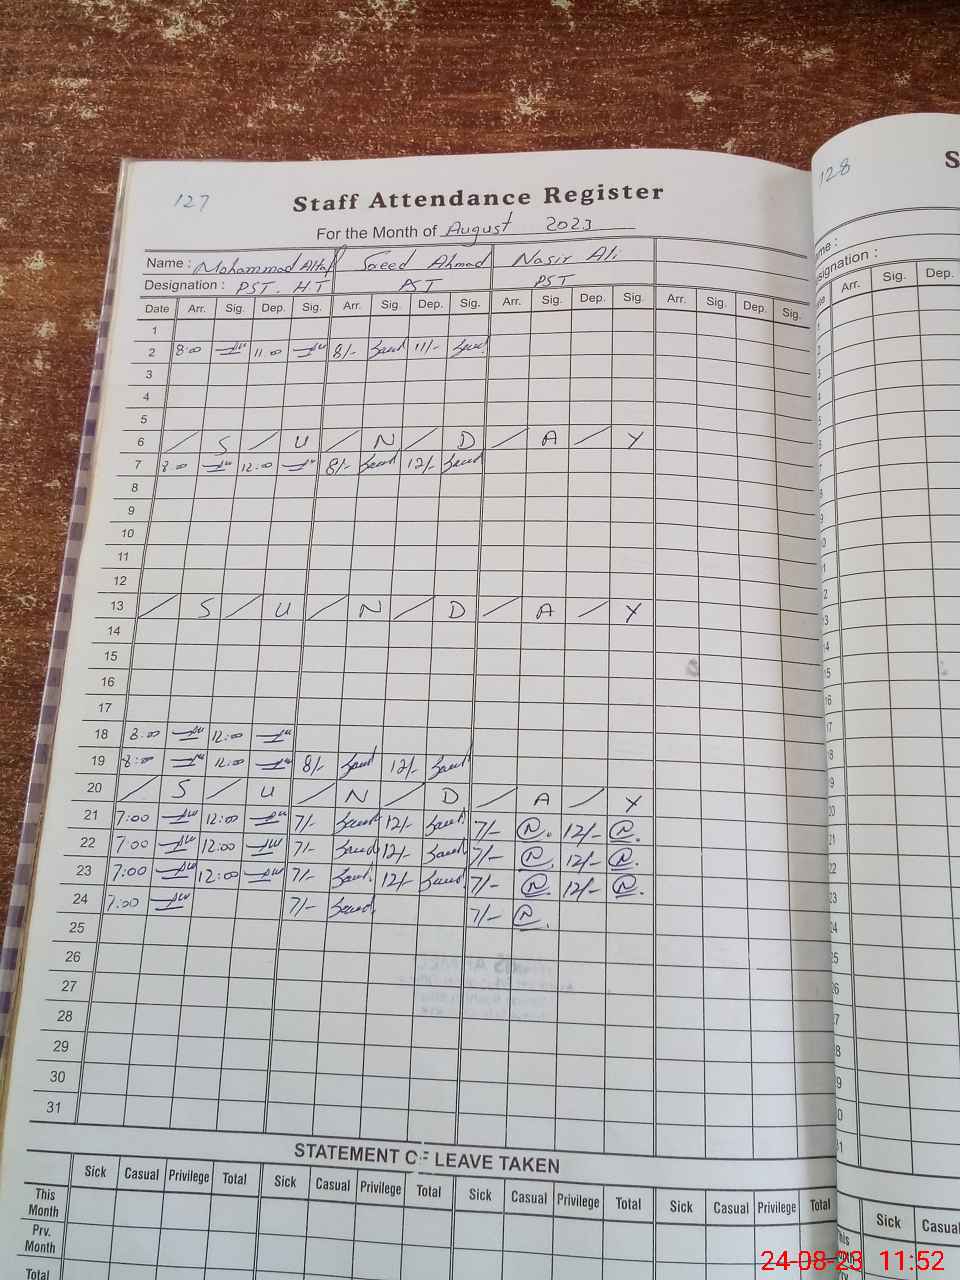 127
128
Staff Attendance Register
S
For the Month of August 2023
Name : Mohammad Altaf Saeed Ahmad Nasir Ali
me :
Designation : PST. H.T PST PST
signation :
Date Arr. Sig. Dep. Sig. Arr. Sig. Dep. Sig. Arr. Sig. Dep. Sig. Arr. Sig. Dep. Sig.
Arr. Sig. Dep.
1
2 8:00 11:00 8/- Saeed 11/- Saeed
3
4
5
6 / S / U / N / D / A / Y
7 8:00 12:00 8/- Saeed 12/- Saeed
8
9
10
11
12
13 / S / U / N / D / A / Y
14
15
16
17
18 8:00 12:00
19 8:00 12:00 8/- Saeed 12/- Saeed
20 / S / U / N / D / A / Y
21 7:00 12:00 7/- Saeed 12/- Saeed 7/- N. 12/- N.
22 7:00 12:00 7/- Saeed 12/- Saeed 7/- N. 12/- N.
23 7:00 12:00 7/- Saeed. 12/- Saeed 7/- N. 12/- N.
24 7:00 7/- Saeed. 7/- N.
25
26
27
28
29
30
31
STATEMENT OF LEAVE TAKEN
Sick Casual Privilege Total Sick Casual Privilege Total Sick Casual Privilege Total Sick Casual Privilege Total
Sick Casual
This Month
Prv. Month
Total
24-08-23 11:52